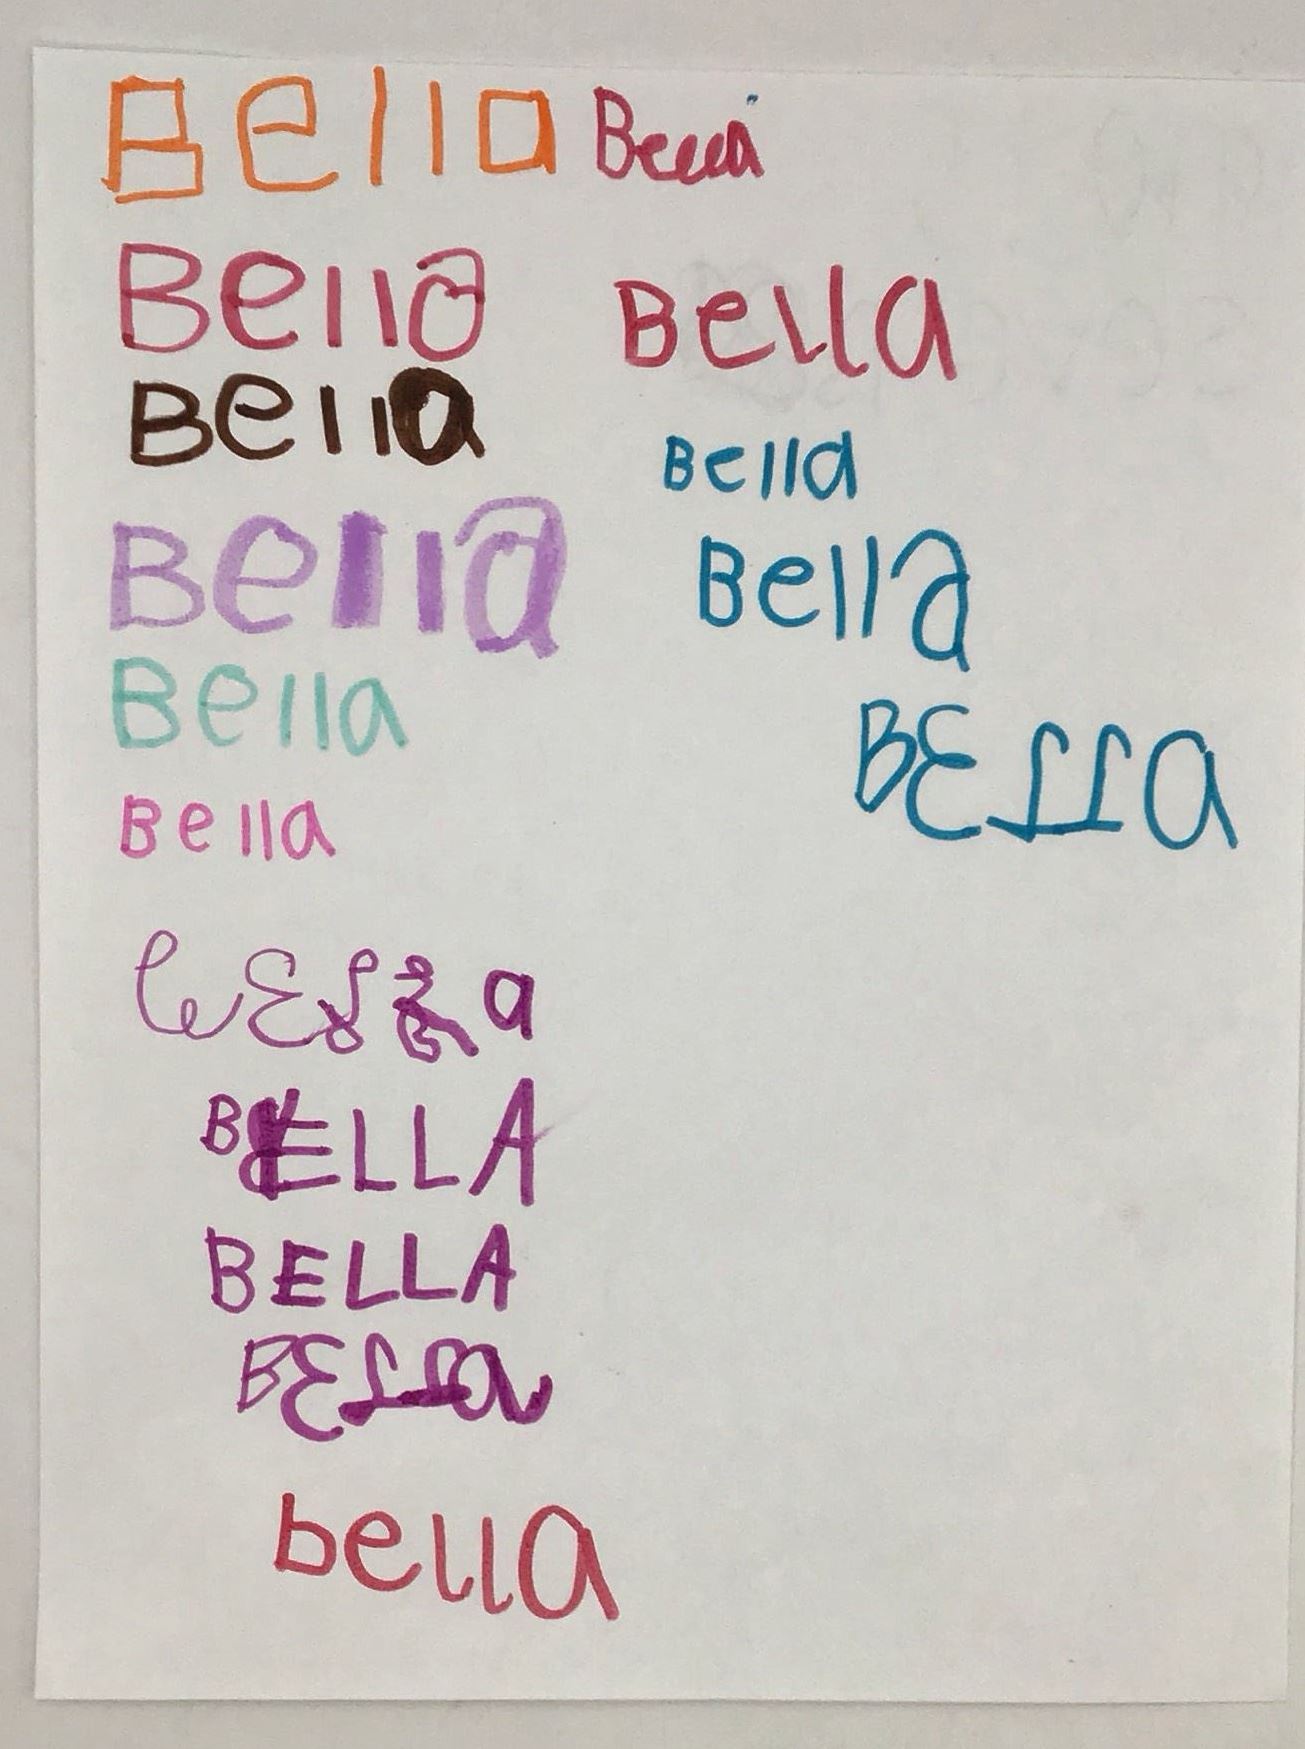 Bella Bella
Bella Bella
Bella
Bella
Bella
Bella
Bella
BELLa
Bella
BELLa
BELLA
BELLA
BELLa
bella